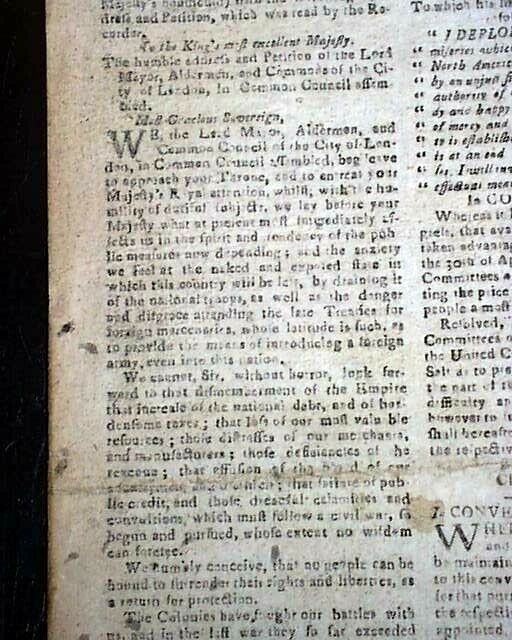 dress and Petition, which was read by the Re-
corder.
To the King's most excellent Majesty.
The humble address and Petition of the Lord
Mayor, Aldermen, and Commons of the Ci-
ty of London, in Common Council assem-
bled.
Most Gracious Sovereign,
WE, the Lord Mayor, Aldermen, and
Common Council of the City of Lon-
don, in Common Council assembled, beg leave
to approach your Throne, and to entreat your
Majesty's Royal attention, whilst, with the hu-
mility of dutiful subjects, we lay before your
Majesty what at present most immediately af-
fects us in the spirit and tendency of the pub-
lic measures now depending; and the anxiety
we feel at the naked and exposed state in
which this country will be left, by draining it
of the national troops, as well as the danger
and disgrace attending the late Treaties for
foreign mercenaries, whose latitude is such, as
to provide the means of introducing a foreign
army, even into this nation.
We cannot, Sir, without horror, look for-
ward to that dismemberment of the Empire
that increase of the national debt, and of bur-
densome taxes; that loss of our most valuable
resources; those distresses of our merchants,
and manufacturers; those deficiencies of the
revenue; that effusion of the blood of our
countrymen and brethren; that failure of pub-
lic credit, and those dreadful calamities and
convulsions, which must follow a civil war, so
begun and pursued, whose extent no wisdom
can foresee.
We humbly conceive, that no people can be
bound to surrender their rights and liberties, as
a return for protection.
The Colonies have fought our battles with
us, and in the last war they so far exceeded
To which his
" I DEPLO
" miseries which
" North Americ
" by an unjust
" authority of
" dy and happy
" of mercy and
" is establish
" is at an end
" I will
" effectual mea
In CO
Whereas it
gress, that ava
taken advantag
the 30th of Ap
Committees
ting the price
people a most
Resolved,
Committees o
the United C
Salt as to pre
the part of t
difficulty ap
however to
shall hereafte
the respectiv
IN CONVE
WHE
and
be maintain
to this conv
for that purp
the respectiv
appointed